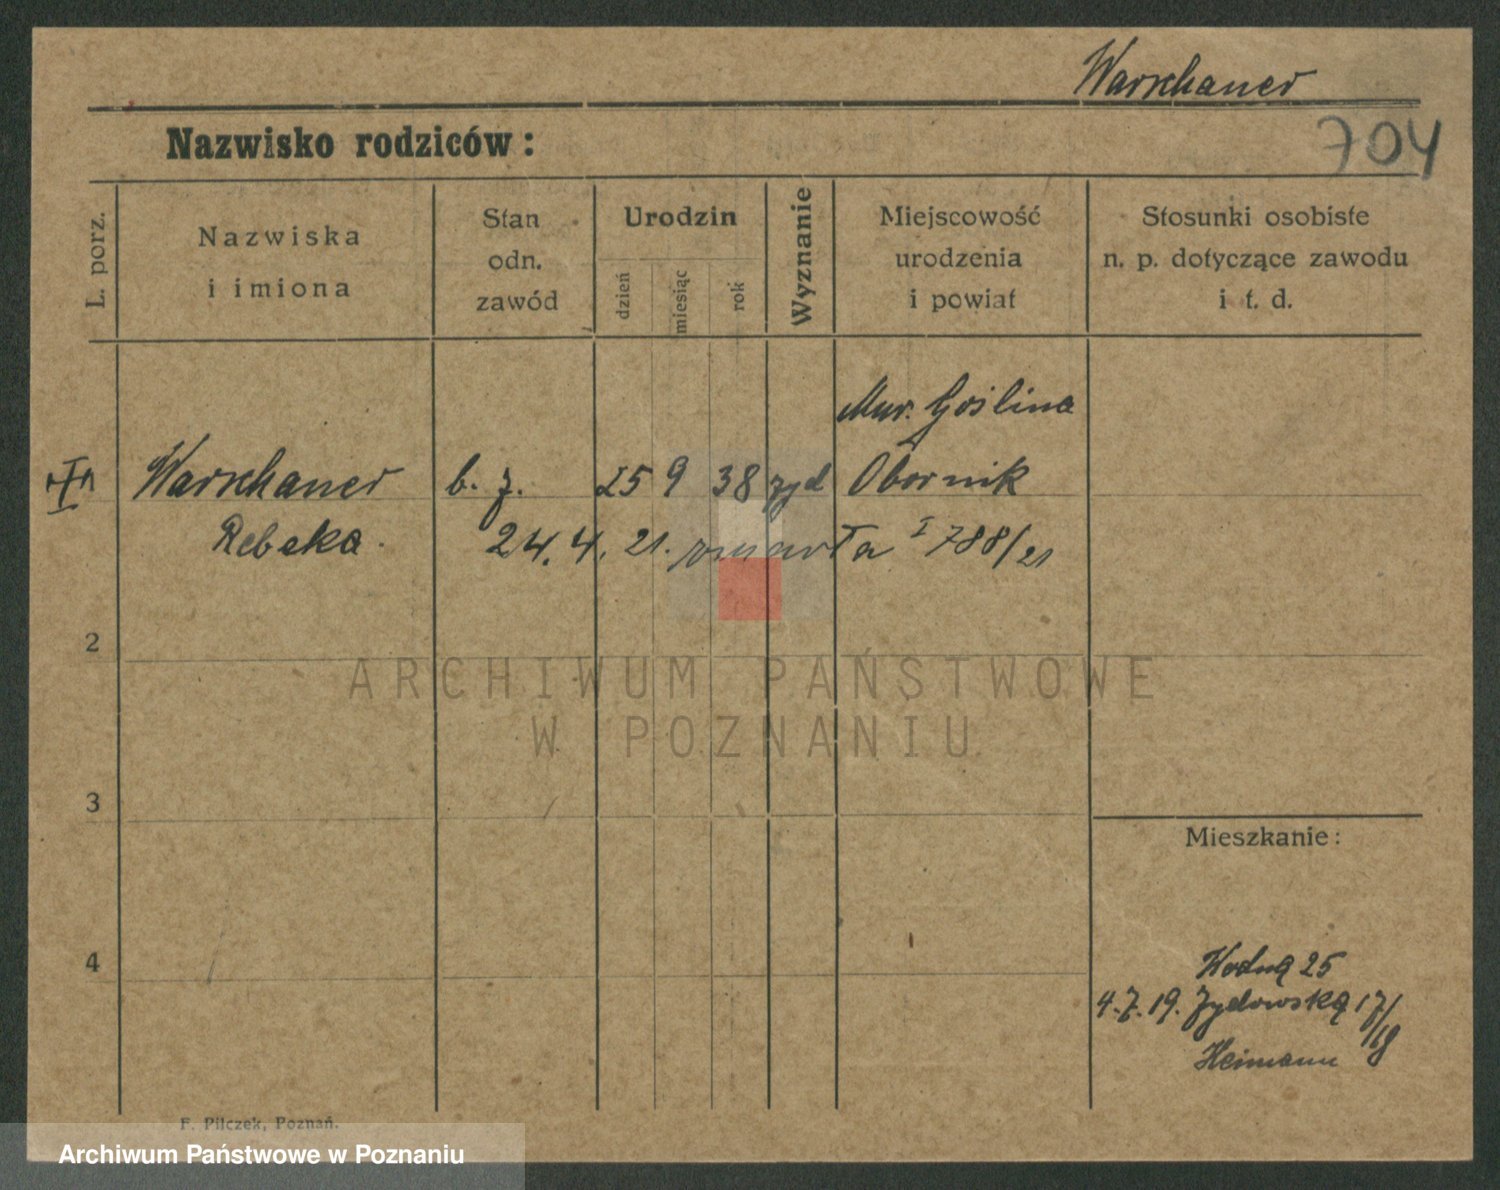 Warschauer
704
Nazwisko rodziców:
L. porz.
Nazwiska
i imiona
Stan
odn.
zawód
Urodzin
dzień
miesiąc
rok
Wyznanie
Miejscowość
urodzenia
i powiat
Stosunki osobiste
n. p. dotyczące zawodu
i t. d.
Mur. Goślina
Warschauer b. z. 25 9 38 żyd Obornik
Rebeka. 24. 4. 21. zmarła I 788/21
2
ARCHIWUM PAŃSTWOWE
W POZNANIU
3
Mieszkanie:
4
Wodną 25
4. 7. 19. Żydowską 17/18
Heimann
F. Pilczek, Poznań.
Archiwum Państwowe w Poznaniu